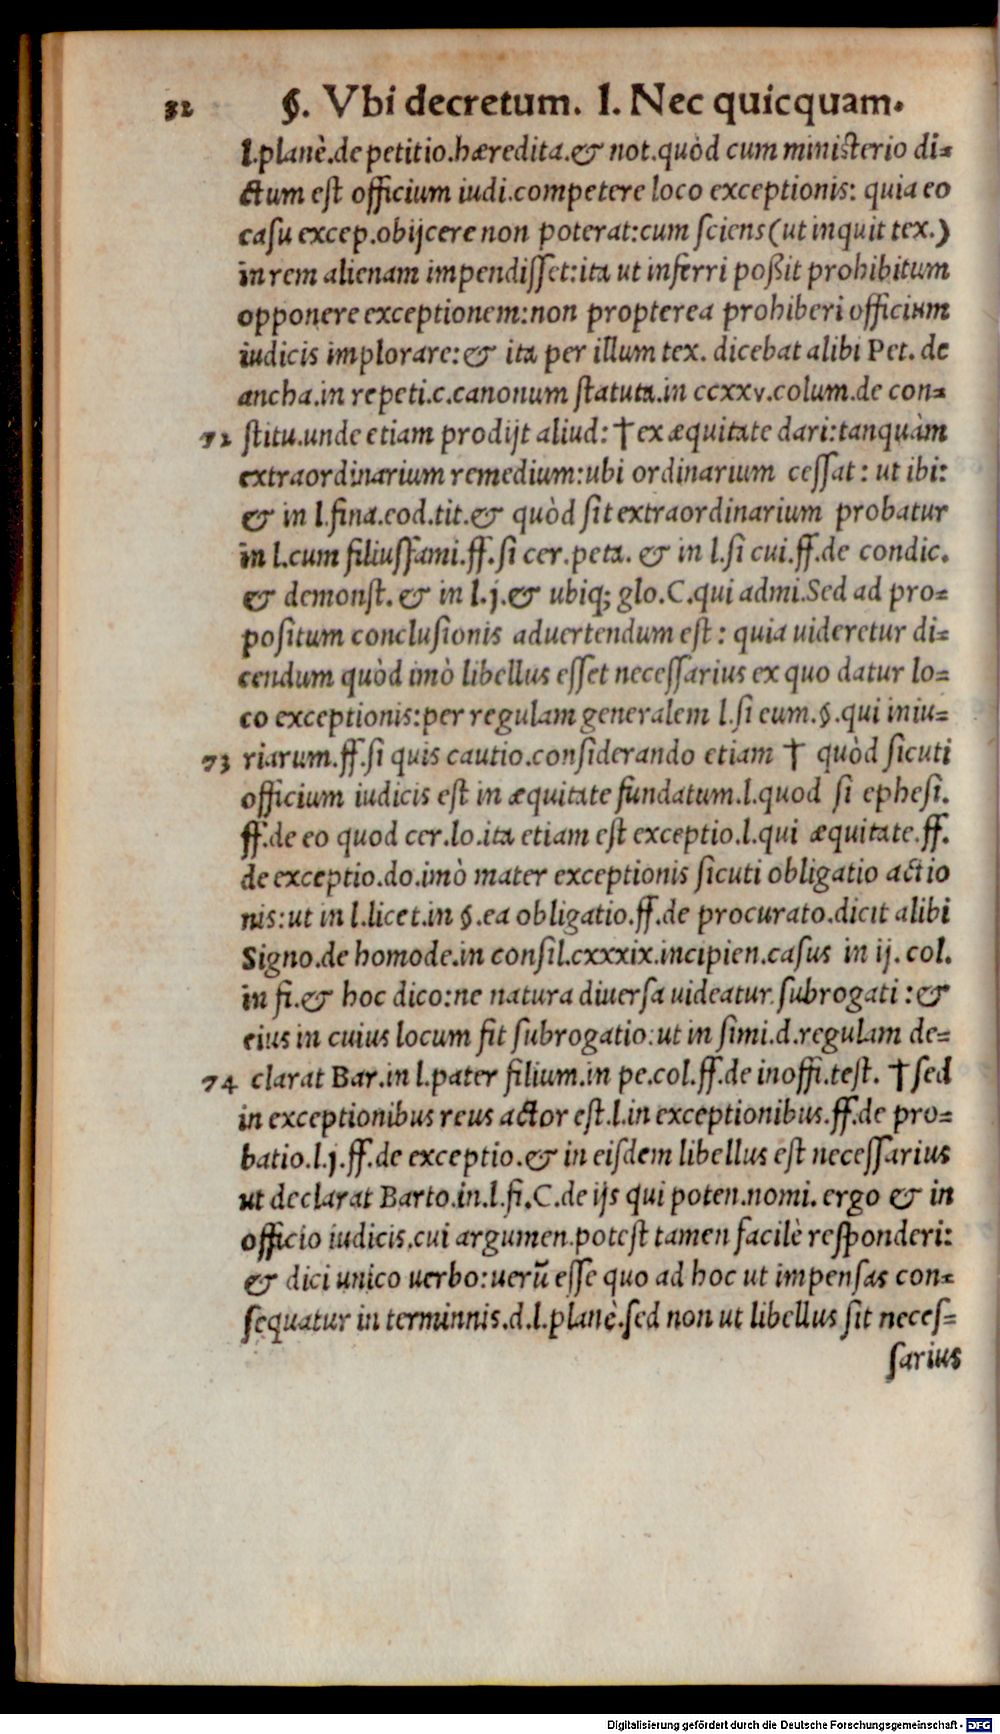 32 §. Vbi decretum. I. Nec quicquam.
l.planè.de petitio.hæredita.& not.quòd cum ministerio di=
ctum est officium iudi.competere loco exceptionis: quia eo
casu excep.obijcere non poterat:cum sciens(ut inquit tex.)
in rem alienam impendisset:ita ut inferri poßit prohibitum
opponere exceptionem:non propterea prohiberi officium
iudicis implorare:& ita per illum tex. dicebat alibi Pet. de
ancha.in repeti.c.canonum statuta.in ccxxv.colum.de con=
72 stitu.unde etiam prodijt aliud: † ex æquitate dari:tanquàm
extraordinarium remedium:ubi ordinarium cessat: ut ibi:
& in l.fina.eod.tit.& quòd sit extraordinarium probatur
in l.cum filiusfami.ff.si cer.peta. & in l.si cui.ff.de condic.
& demonst. & in l.j.& ubiq; glo.C.qui admi.Sed ad pro=
positum conclusionis aduertendum est: quia uideretur di=
cendum quòd imò libellus esset necessarius ex quo datur lo=
co exceptionis:per regulam generalem l.si eum.§.qui iniu=
73 riarum.ff.si quis cautio.considerando etiam † quòd sicuti
officium iudicis est in æquitate fundatum.l.quod si ephesi.
ff.de eo quod cer.lo.ita etiam est exceptio.l.qui æquitate.ff.
de exceptio.do.imò mater exceptionis sicuti obligatio actio
nis:ut in l.licet.in §.ea obligatio.ff.de procurato.dicit alibi
Signo.de homode.in consil.cxxxix.incipien.casus in ij. col.
in fi.& hoc dico:ne natura diuersa uideatur subrogati:&
eius in cuius locum fit subrogatio:ut in simi.d.regulam de=
74 clarat Bar.in l.pater filium.in pe.col.ff.de inoffi.test. † sed
in exceptionibus reus actor est.l.in exceptionibus.ff.de pro=
batio.l.j.ff.de exceptio.& in eisdem libellus est necessarius
ut declarat Barto.in.l.fi.C.de ijs qui poten.nomi. ergo & in
officio iudicis.cui argumen.potest tamen facilè responderi:
& dici unico uerbo:uerũ esse quo ad hoc ut impensas con=
sequatur in terminnis.d.l.planè.sed non ut libellus sit neces=
sarius
Digitalisierung gefördert durch die Deutsche Forschungsgemeinschaft - DFG